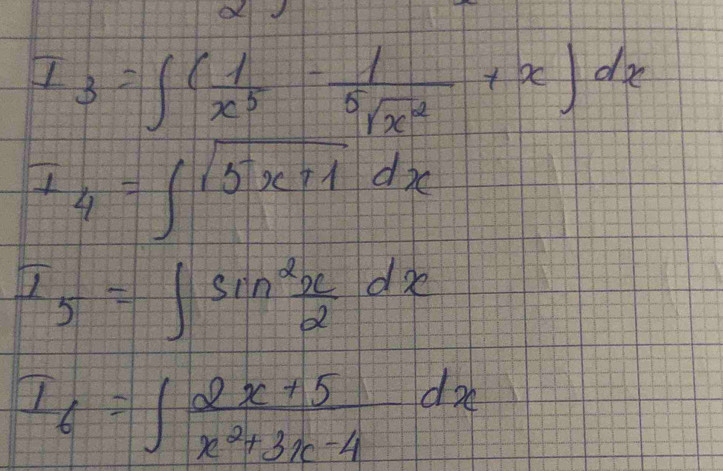 I₃ = ∫ (1/x⁵ - 1/⁵√x² + x) dx
I₄ = ∫ √(5x+1) dx
I₅ = ∫ sin² x/2 dx
I₆ = ∫ (2x+5)/(x²+3x-4) dx